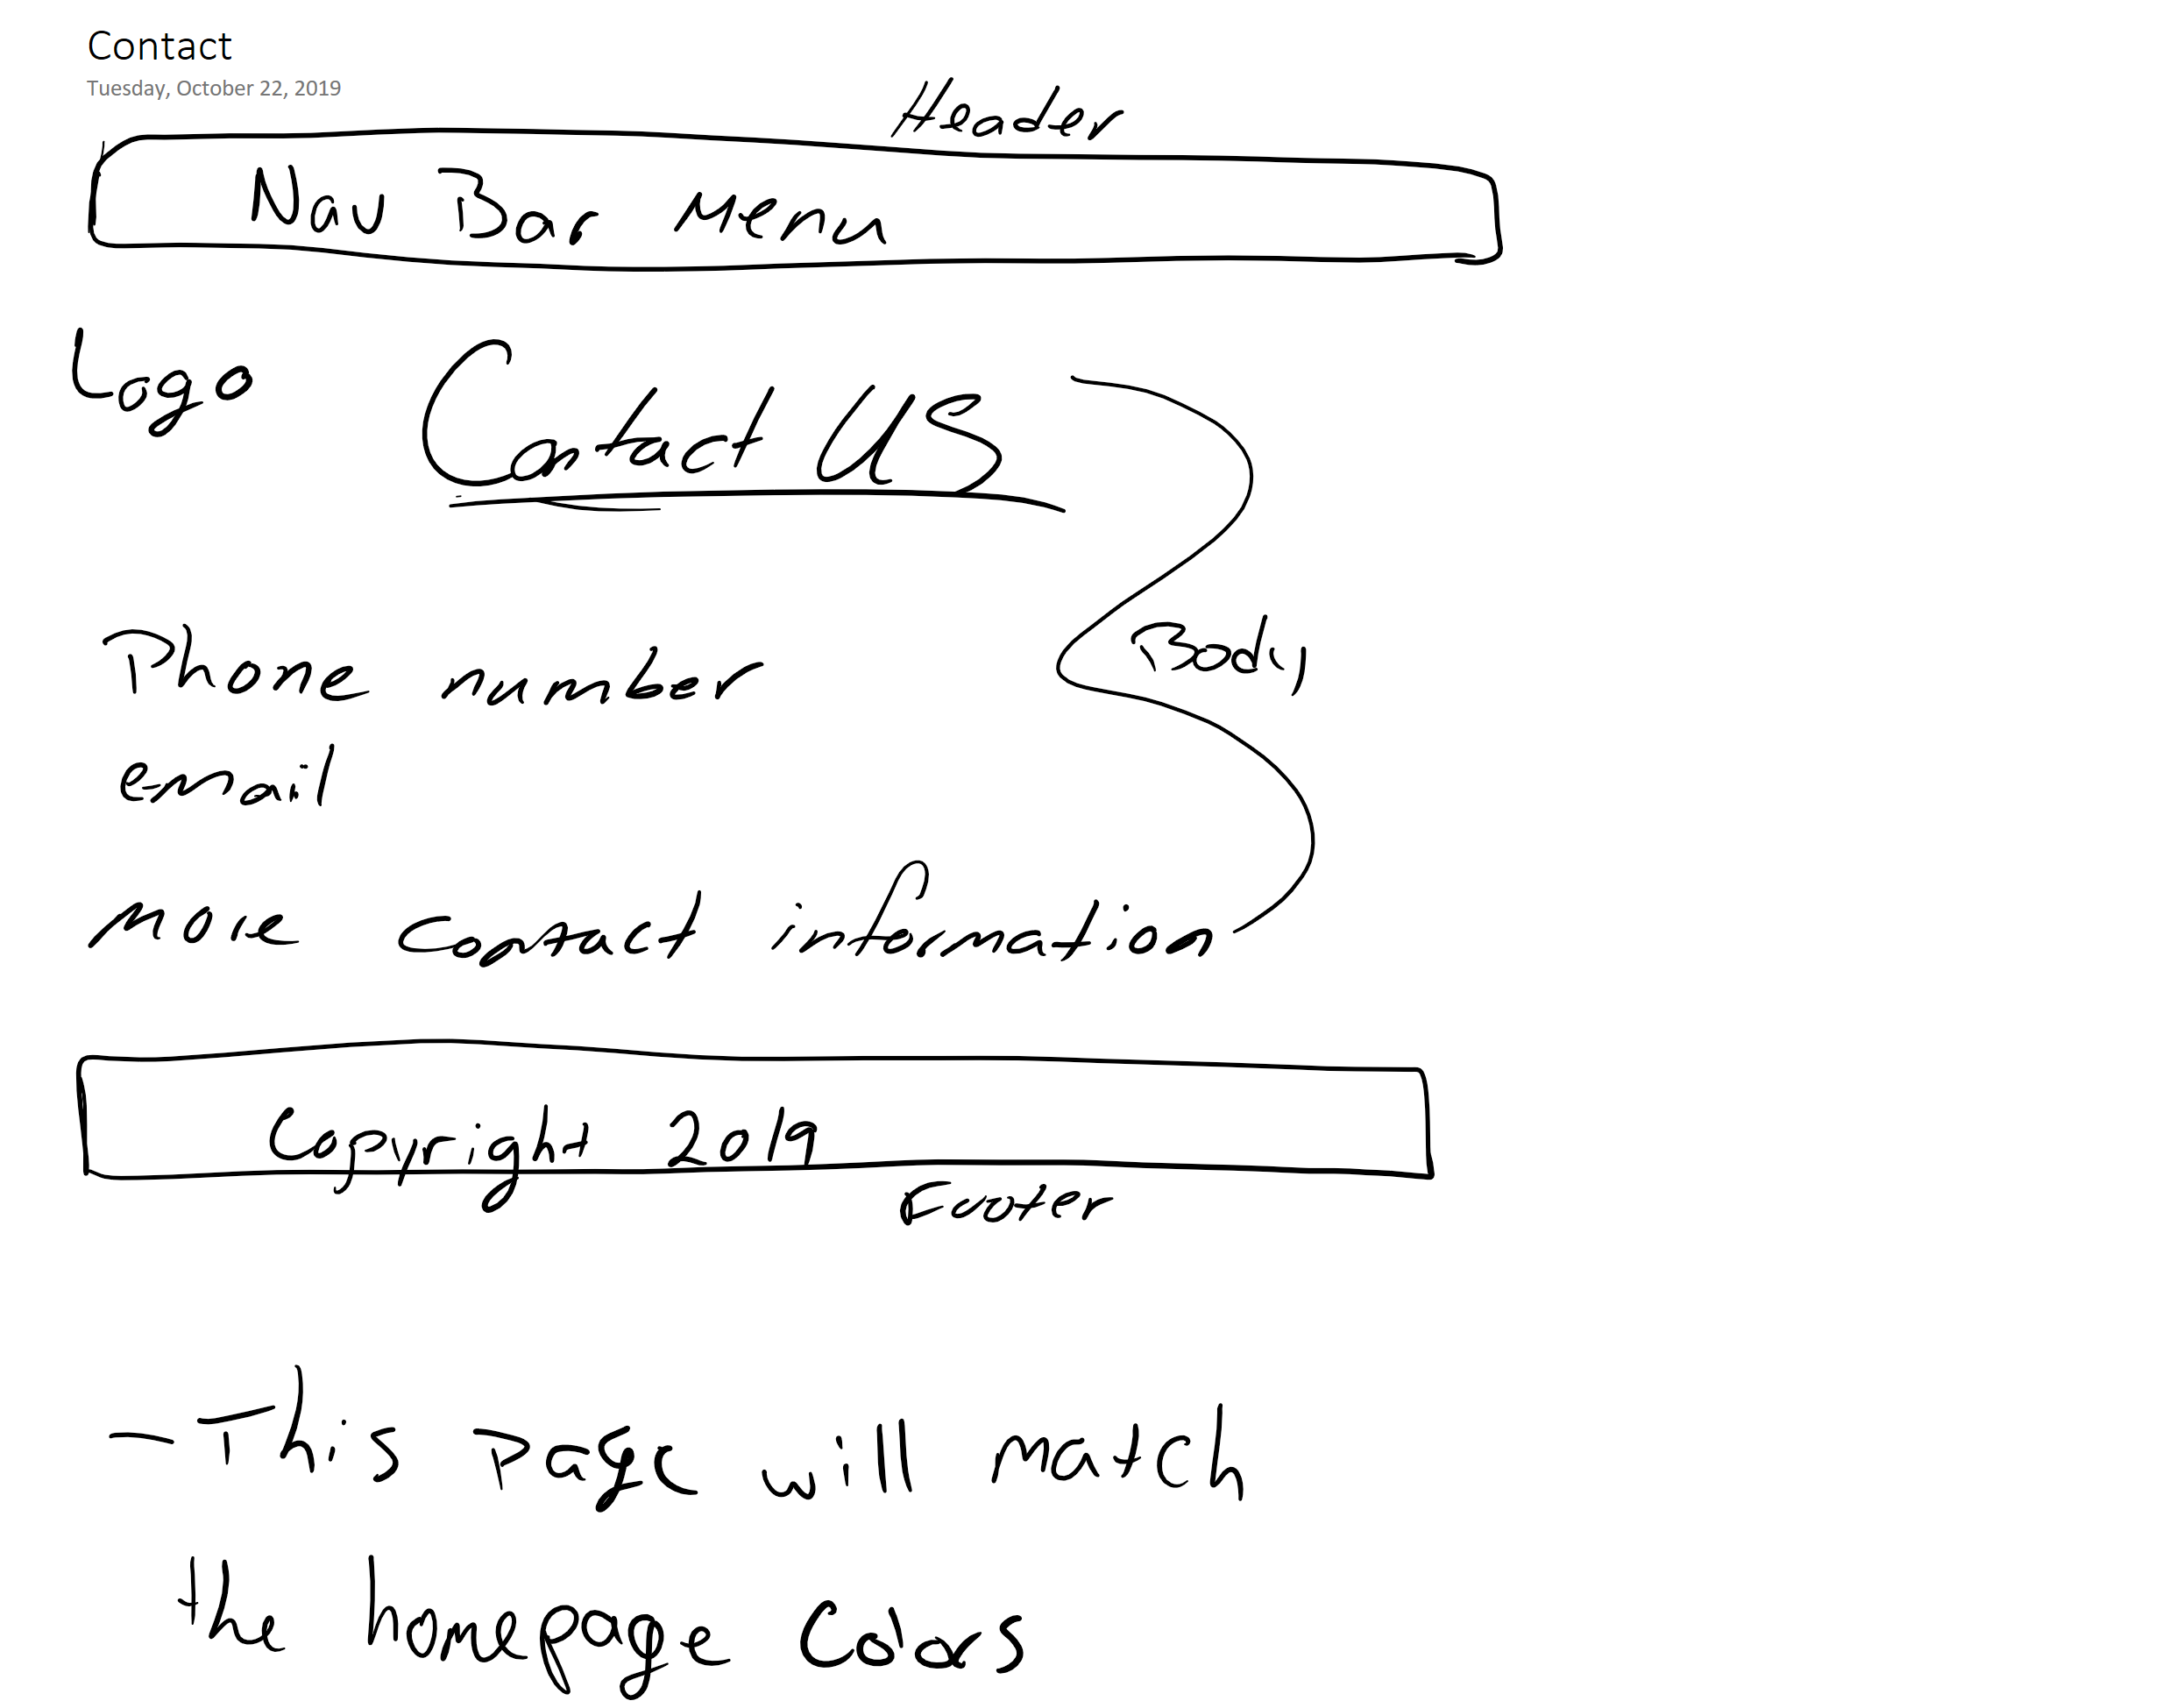 Contact
Tuesday, October 22, 2019
Header
Nav Bar Menu
Logo
Contact US
Phone number
Body
email
more contact information
Copyright 2019
Footer
- This page will match
the homepage Colors